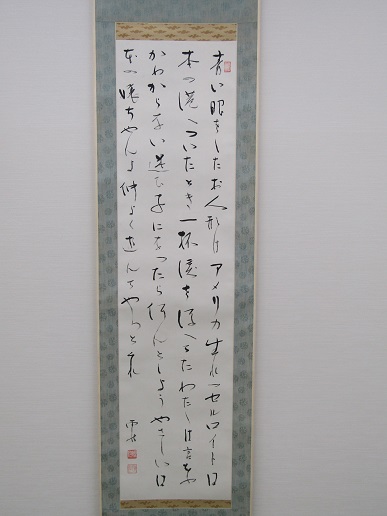 青い眼をしたお人形は アメリカ生れのセルロイト日
本の港へついたとき 一杯涙を浮へてたわたしは言葉
かわからない 迷ひ子になつたら何んとしよう やさしい日
本の嬢ちやんよ 仲よく遊んてやつとくれ
雨情